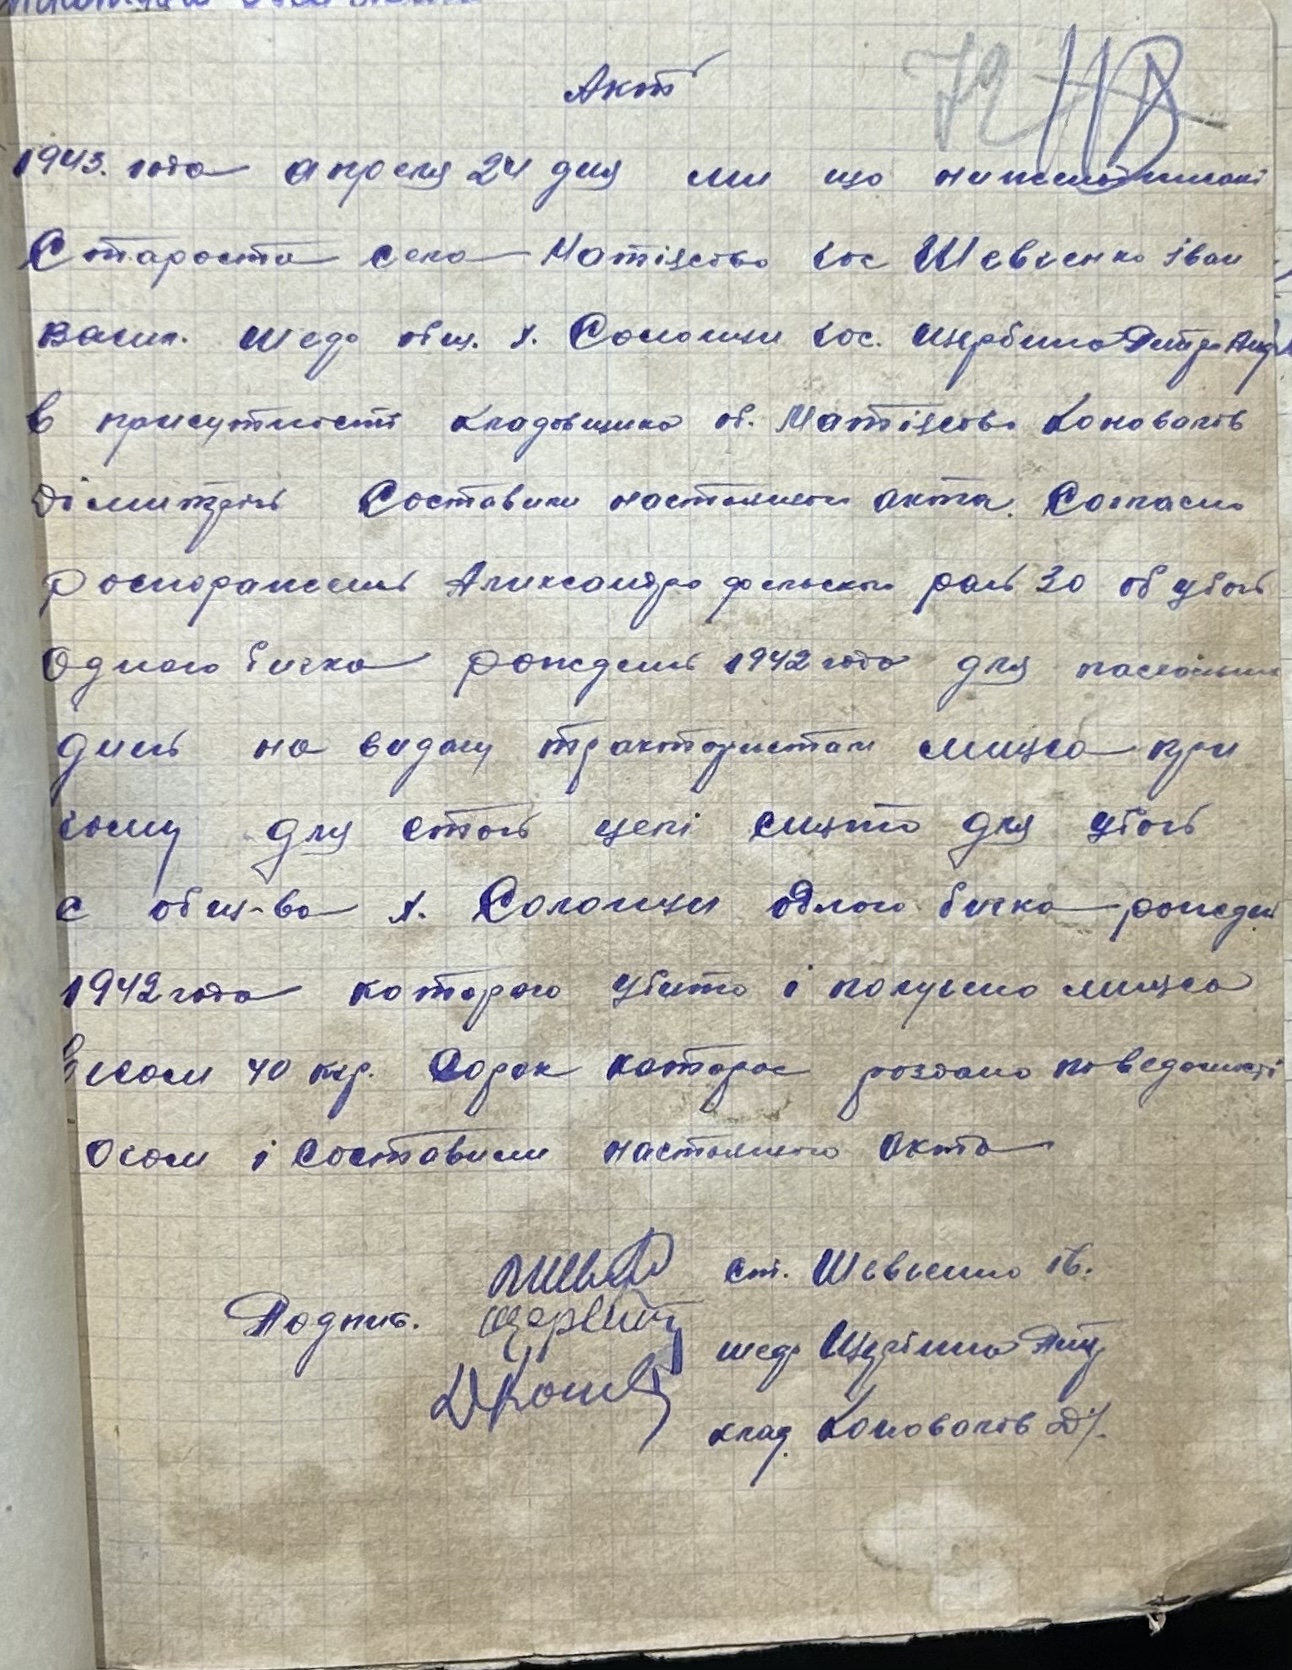 Актъ
1943. года апреля 24 дня ми що нижеподписані
Староста села Матіясово гос Шевченко Іван
Васил. шеф общ. х. Солонци гос. Щербина Петро Анд
в присутності кладовщика об. Матіясово Коновалов
Дімитрій Составили настоящого акта. Согласно
роспоражения Александро район 30 об убою
Одного бичка рождения 1942 года для пасхальни
дней на видачу трактористам мняса при
чому для етой целі снято для убоя
с общ-ва х. Солонци одного бичка рожден
1942 года которого убито і получено мняса
весом 40 кгр. Сорок которое роздано по ведомості
о чом і составили настоящого акта
Подпис. ст. Шевченко Ів.
Щербина
шеф Щербина Петр
клад. Коновалов Д.